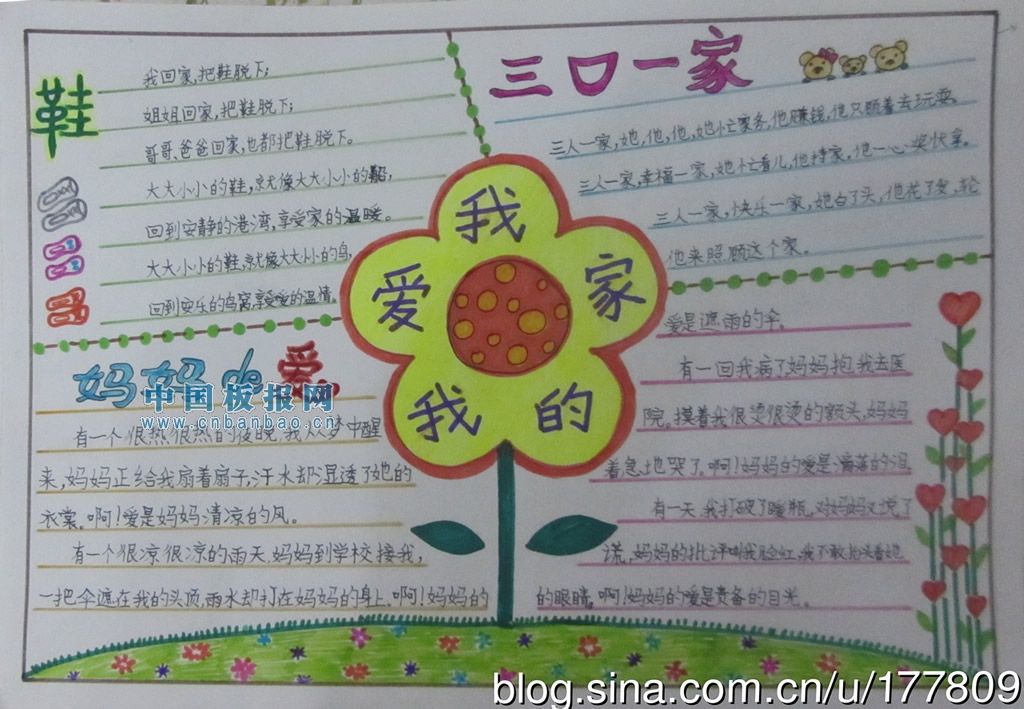 鞋
我回家,把鞋脱下;
姐姐回家,把鞋脱下;
哥哥、爸爸回家,也都把鞋脱下。
大大小小的鞋,就像大大小小的船,
回到安静的港湾,享受家的温暖。
大大小小的鞋,就像大大小小的鸟,
回到安乐的鸟窝,享受爱的温情。
三口一家
三人一家,她,他,他,她忙家务,他赚钱,他只顾着去玩耍。
三人一家,幸福一家,她忙着儿,他持家,他一心奖状拿。
三人一家,快乐一家,她白了头,他花了发,轮
他来照顾这个家。
我
爱
家
我
的
妈妈的爱
中国板报网
www.cnbanbao.cn
有一个很热很热的夜晚,我从梦中醒
来,妈妈正给我扇着扇子,汗水却湿透了她的
衣裳。啊!爱是妈妈清凉的风。
有一个很凉很凉的雨天,妈妈到学校接我,
一把伞遮在我的头顶,雨水却打在妈妈的身上。啊!妈妈的
爱是遮雨的伞。
有一回我病了,妈妈抱我去医
院。摸着我很烫很烫的额头,妈妈
着急地哭了。啊!妈妈的爱是滴落的泪。
有一天,我打破了暖瓶,对妈妈又说了
谎,妈妈的批评叫我脸红,我不敢抬头看她
的眼睛。啊!妈妈的爱是责备的目光。
blog.sina.com.cn/u/177809